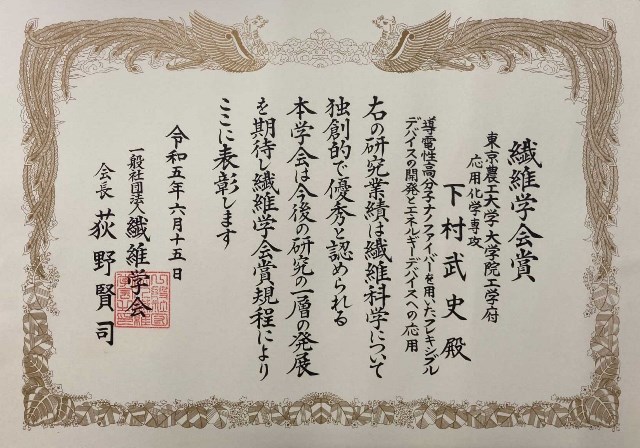 繊維学会賞
東京農工大学大学院工学府
応用化学専攻
下村武史 殿
導電性高分子ナノファイバーを用いたフレキシブル
デバイスの開発とエネルギーデバイスへの応用
右の研究業績は繊維科学について
独創的で優秀と認められる
本学会は今後の研究の一層の発展
を期待し繊維学会賞規程により
ここに表彰します
令和五年六月十五日
一般社団法人 繊維学会
会長 荻野賢司